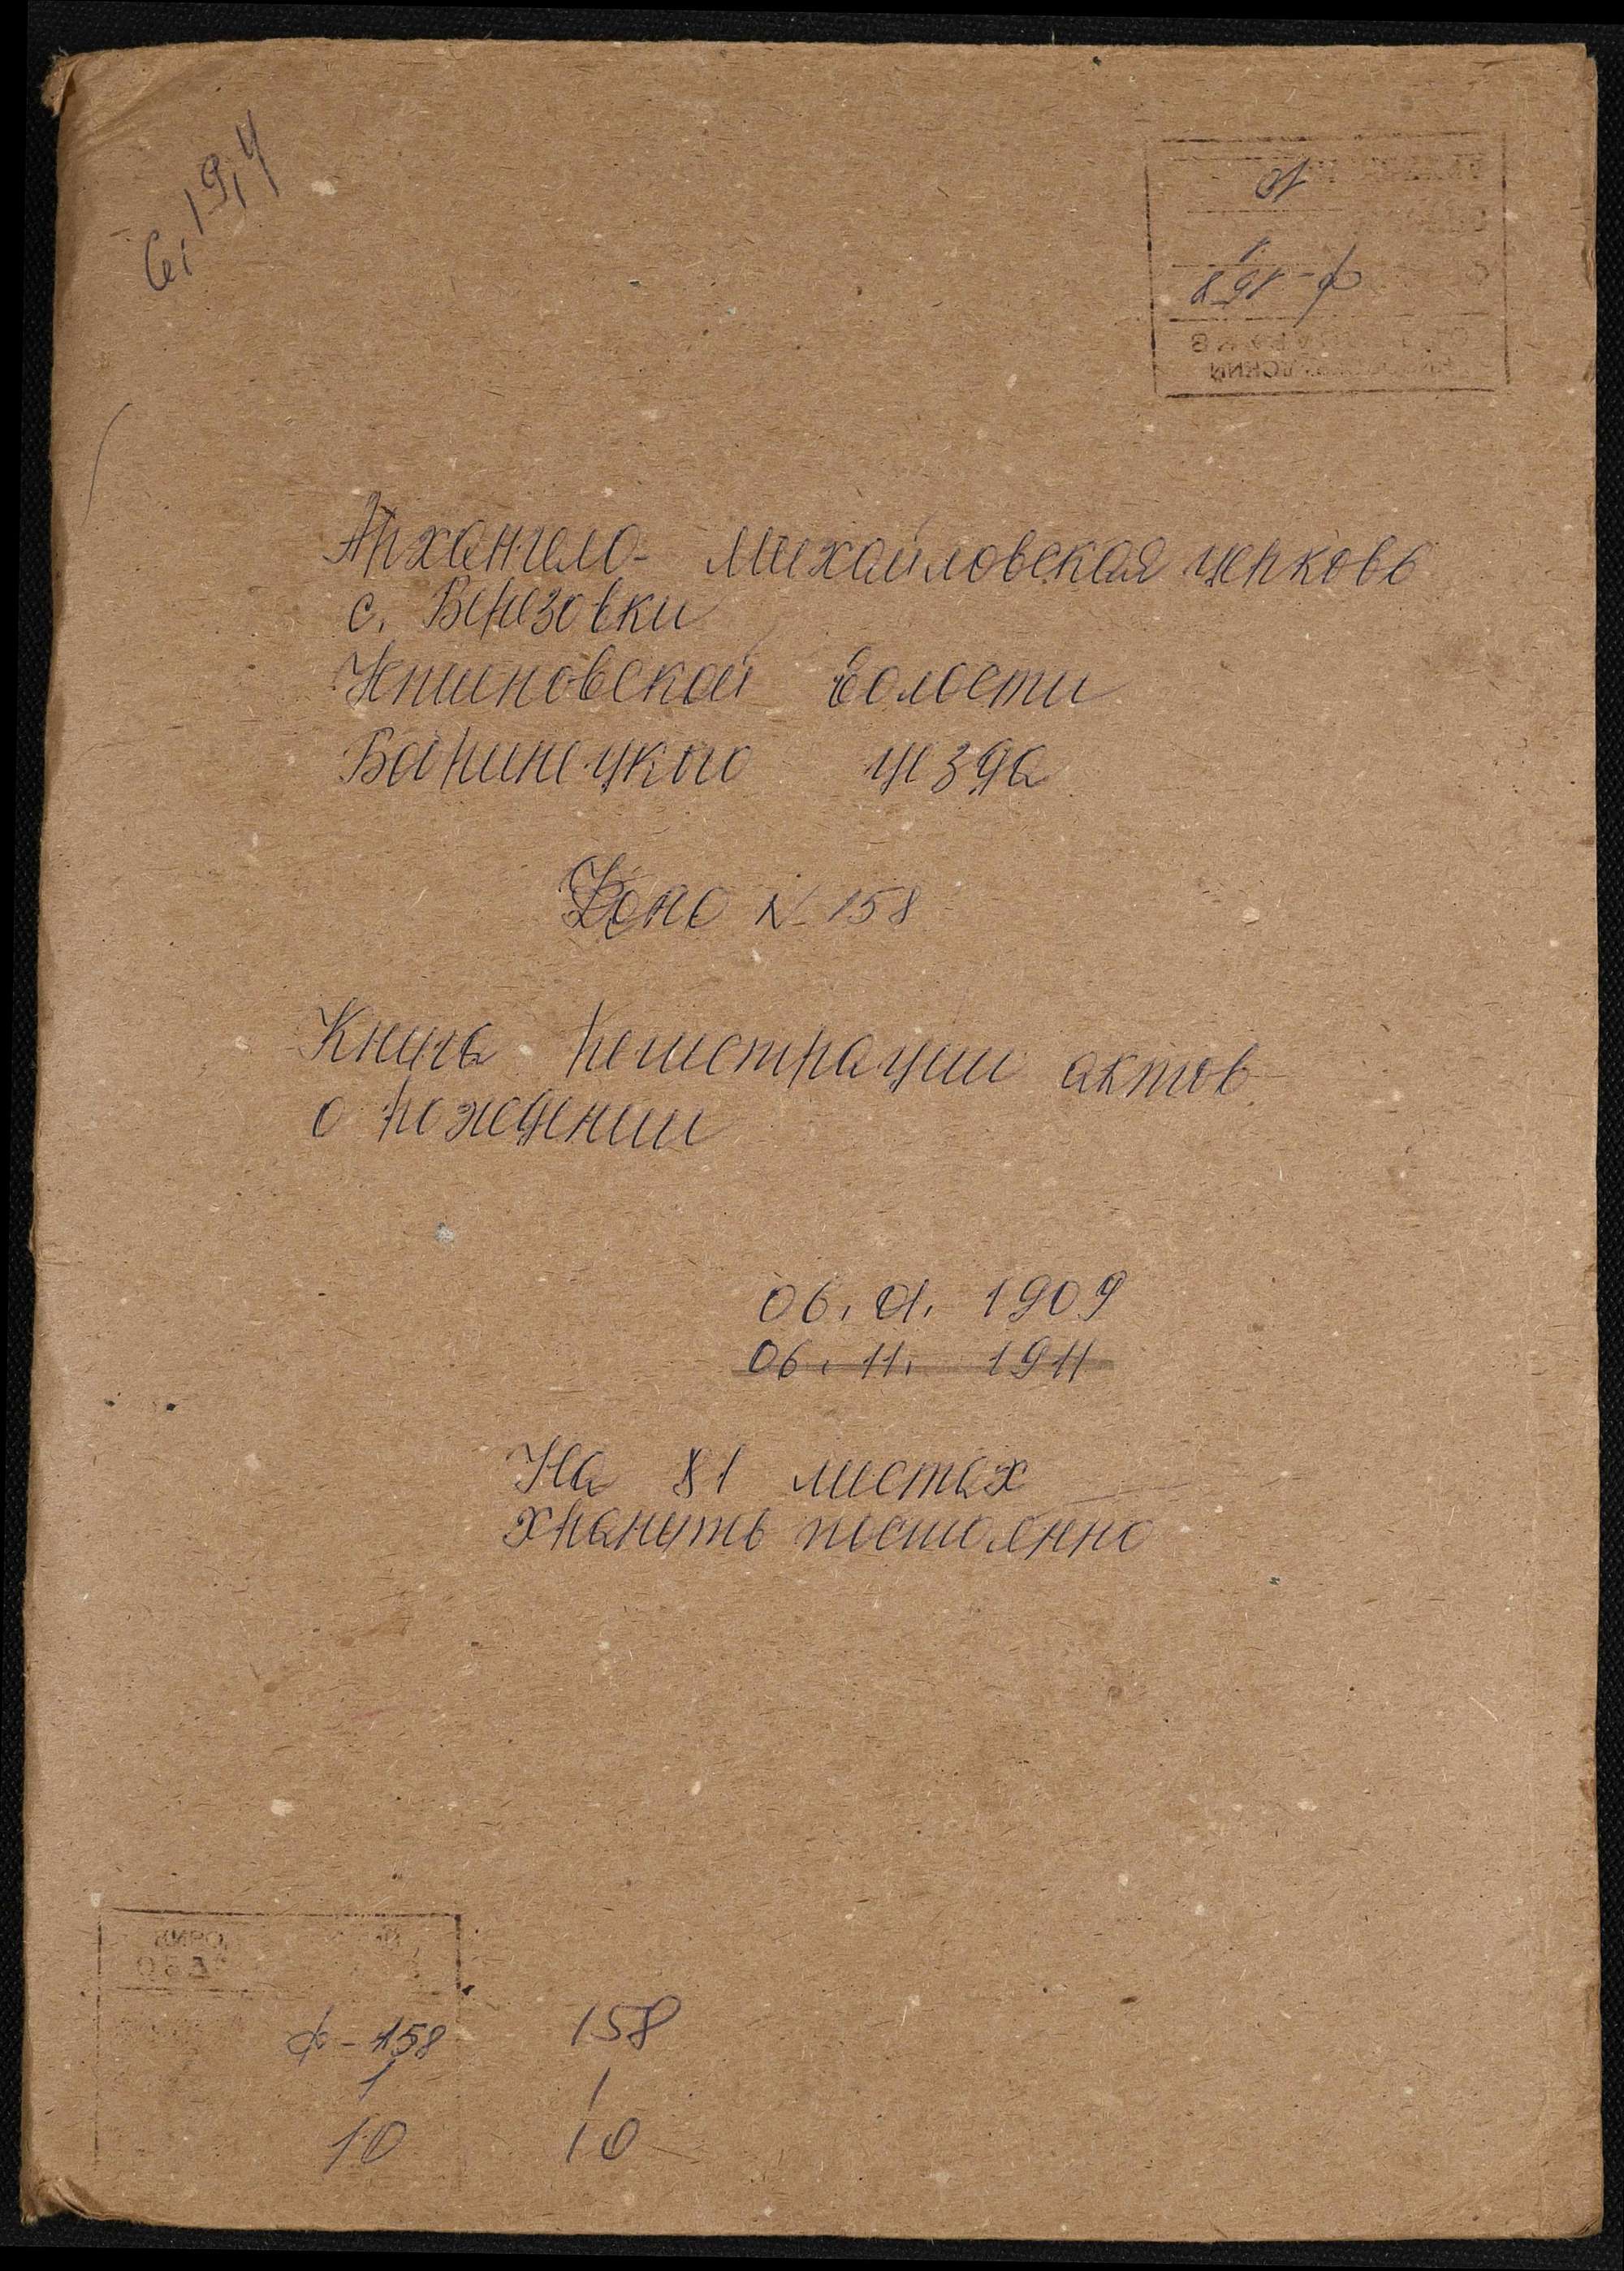 6,19,4
10
1
Ф-158
Архангело-Михайловская церковь
с. Березовки
волости
уезда
№ 158
Книга регистрации актов
о рождении
06. 01. 1909
06. 11. 1911
На 81 листах
хранить постоянно
Ф-158 158
1 1
10 10